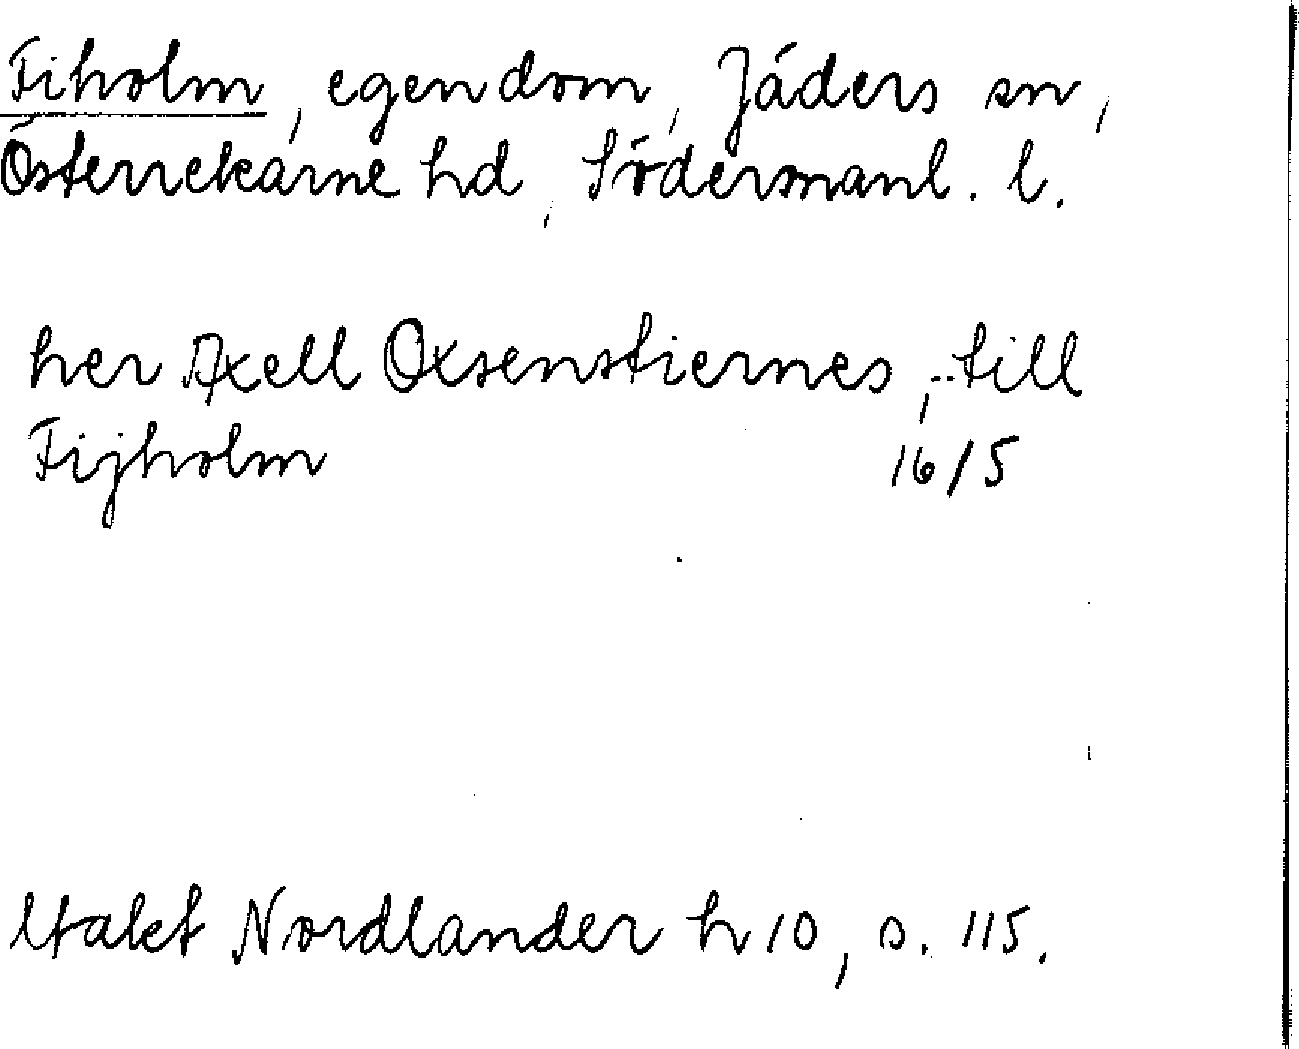 Fiholm, egendom, Jäders sn,
Österrekarne hd, Södermanl. l.
her Axell Oxsenstiernes, .. till
Fijholm 1615
Utakt Nordlander h 10, s. 115.